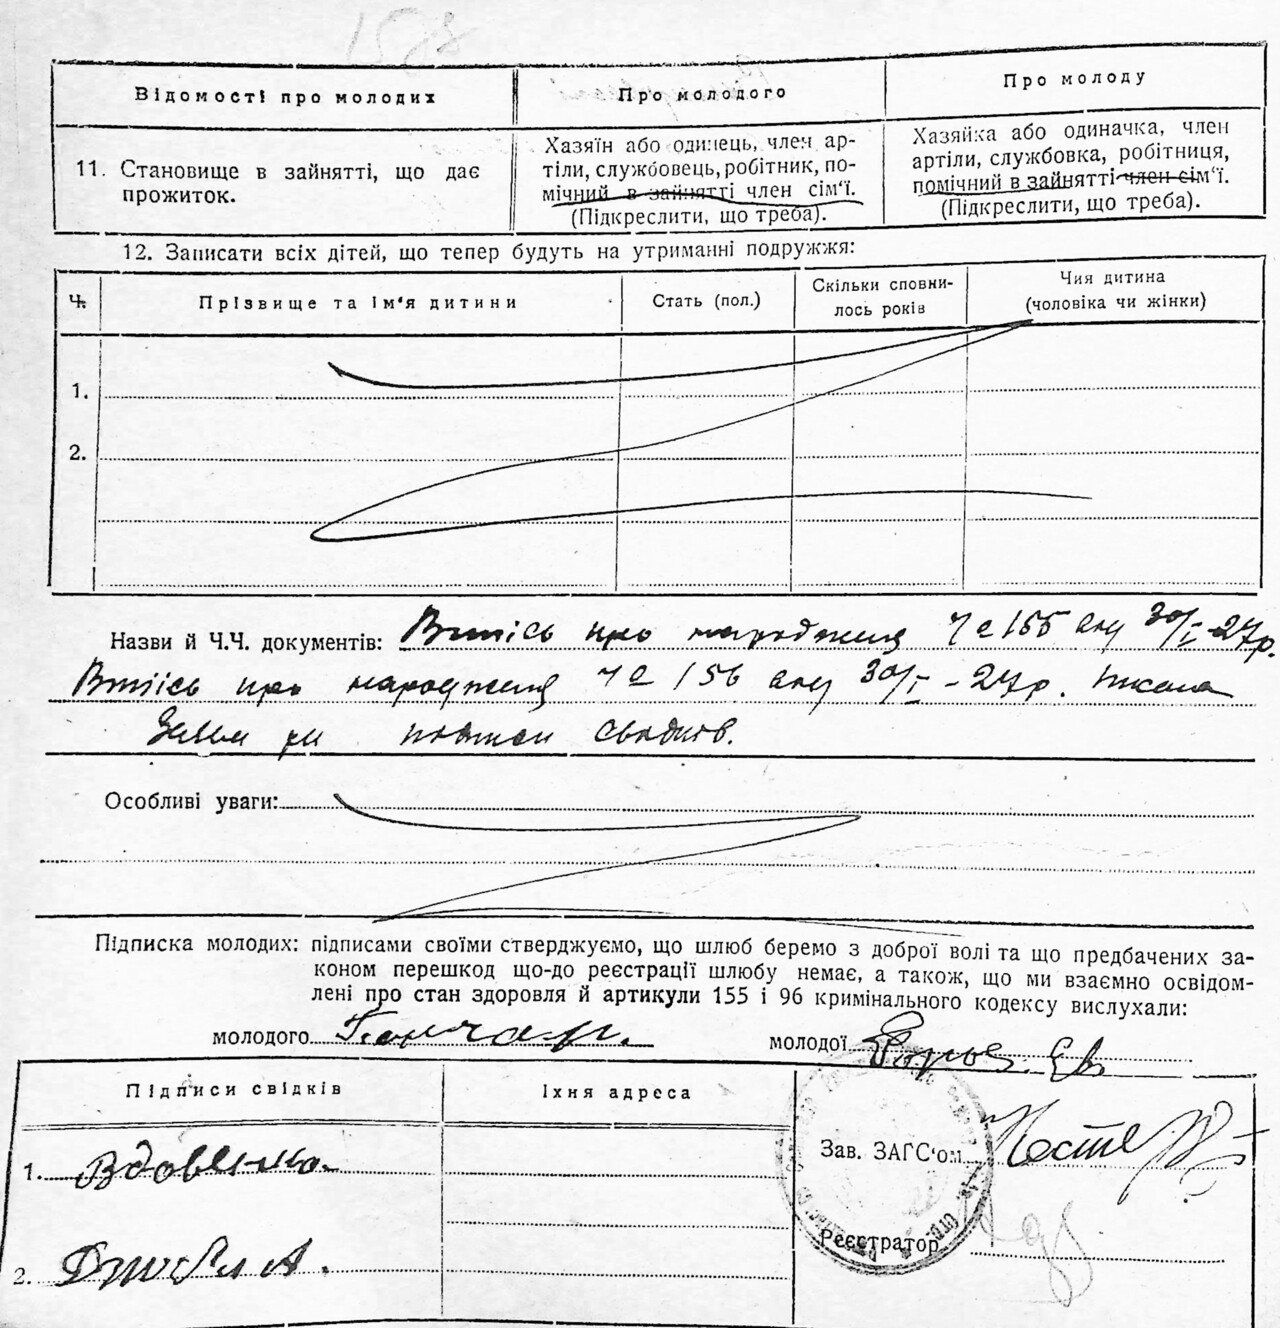 Відомості про молодих
Про молодого
Про молоду
11. Становище в зайнятті, що дає
прожиток.
Хазяїн або одинець, член ар-
тіли, службовець, робітник, по-
мічний в зайнятті член сім'ї.
(Підкреслити, що треба).
Хазяйка або одиначка, член
артіли, службовка, робітниця,
помічний в зайнятті член сім'ї.
(Підкреслити, що треба).
12. Записати всіх дітей, що тепер будуть на утриманні подружжя:
Ч.
Прізвище та ім'я дитини
Стать (пол.)
Скільки сповни-
лось років
Чия дитина
(чоловіка чи жінки)
1.
2.
Назви й Ч.Ч. документів: Витісь про народження 155 30/I-27р.
Витісь про народження 156 30/I-27р.
Особливі уваги:
Підписка молодих: підписами своїми стверджуємо, що шлюб беремо з доброї волі та що предбачених за-
коном перешкод що-до реєстрації шлюбу немає, а також, що ми взаємно освідом-
лені про стан здоровля й артикули 155 і 96 кримінального кодексу вислухали:
молодого Гончар
молодої
Підписи свідків
Їхня адреса
1. Вдовенко
2.
Зав. ЗАГС'ом
Реєстратор